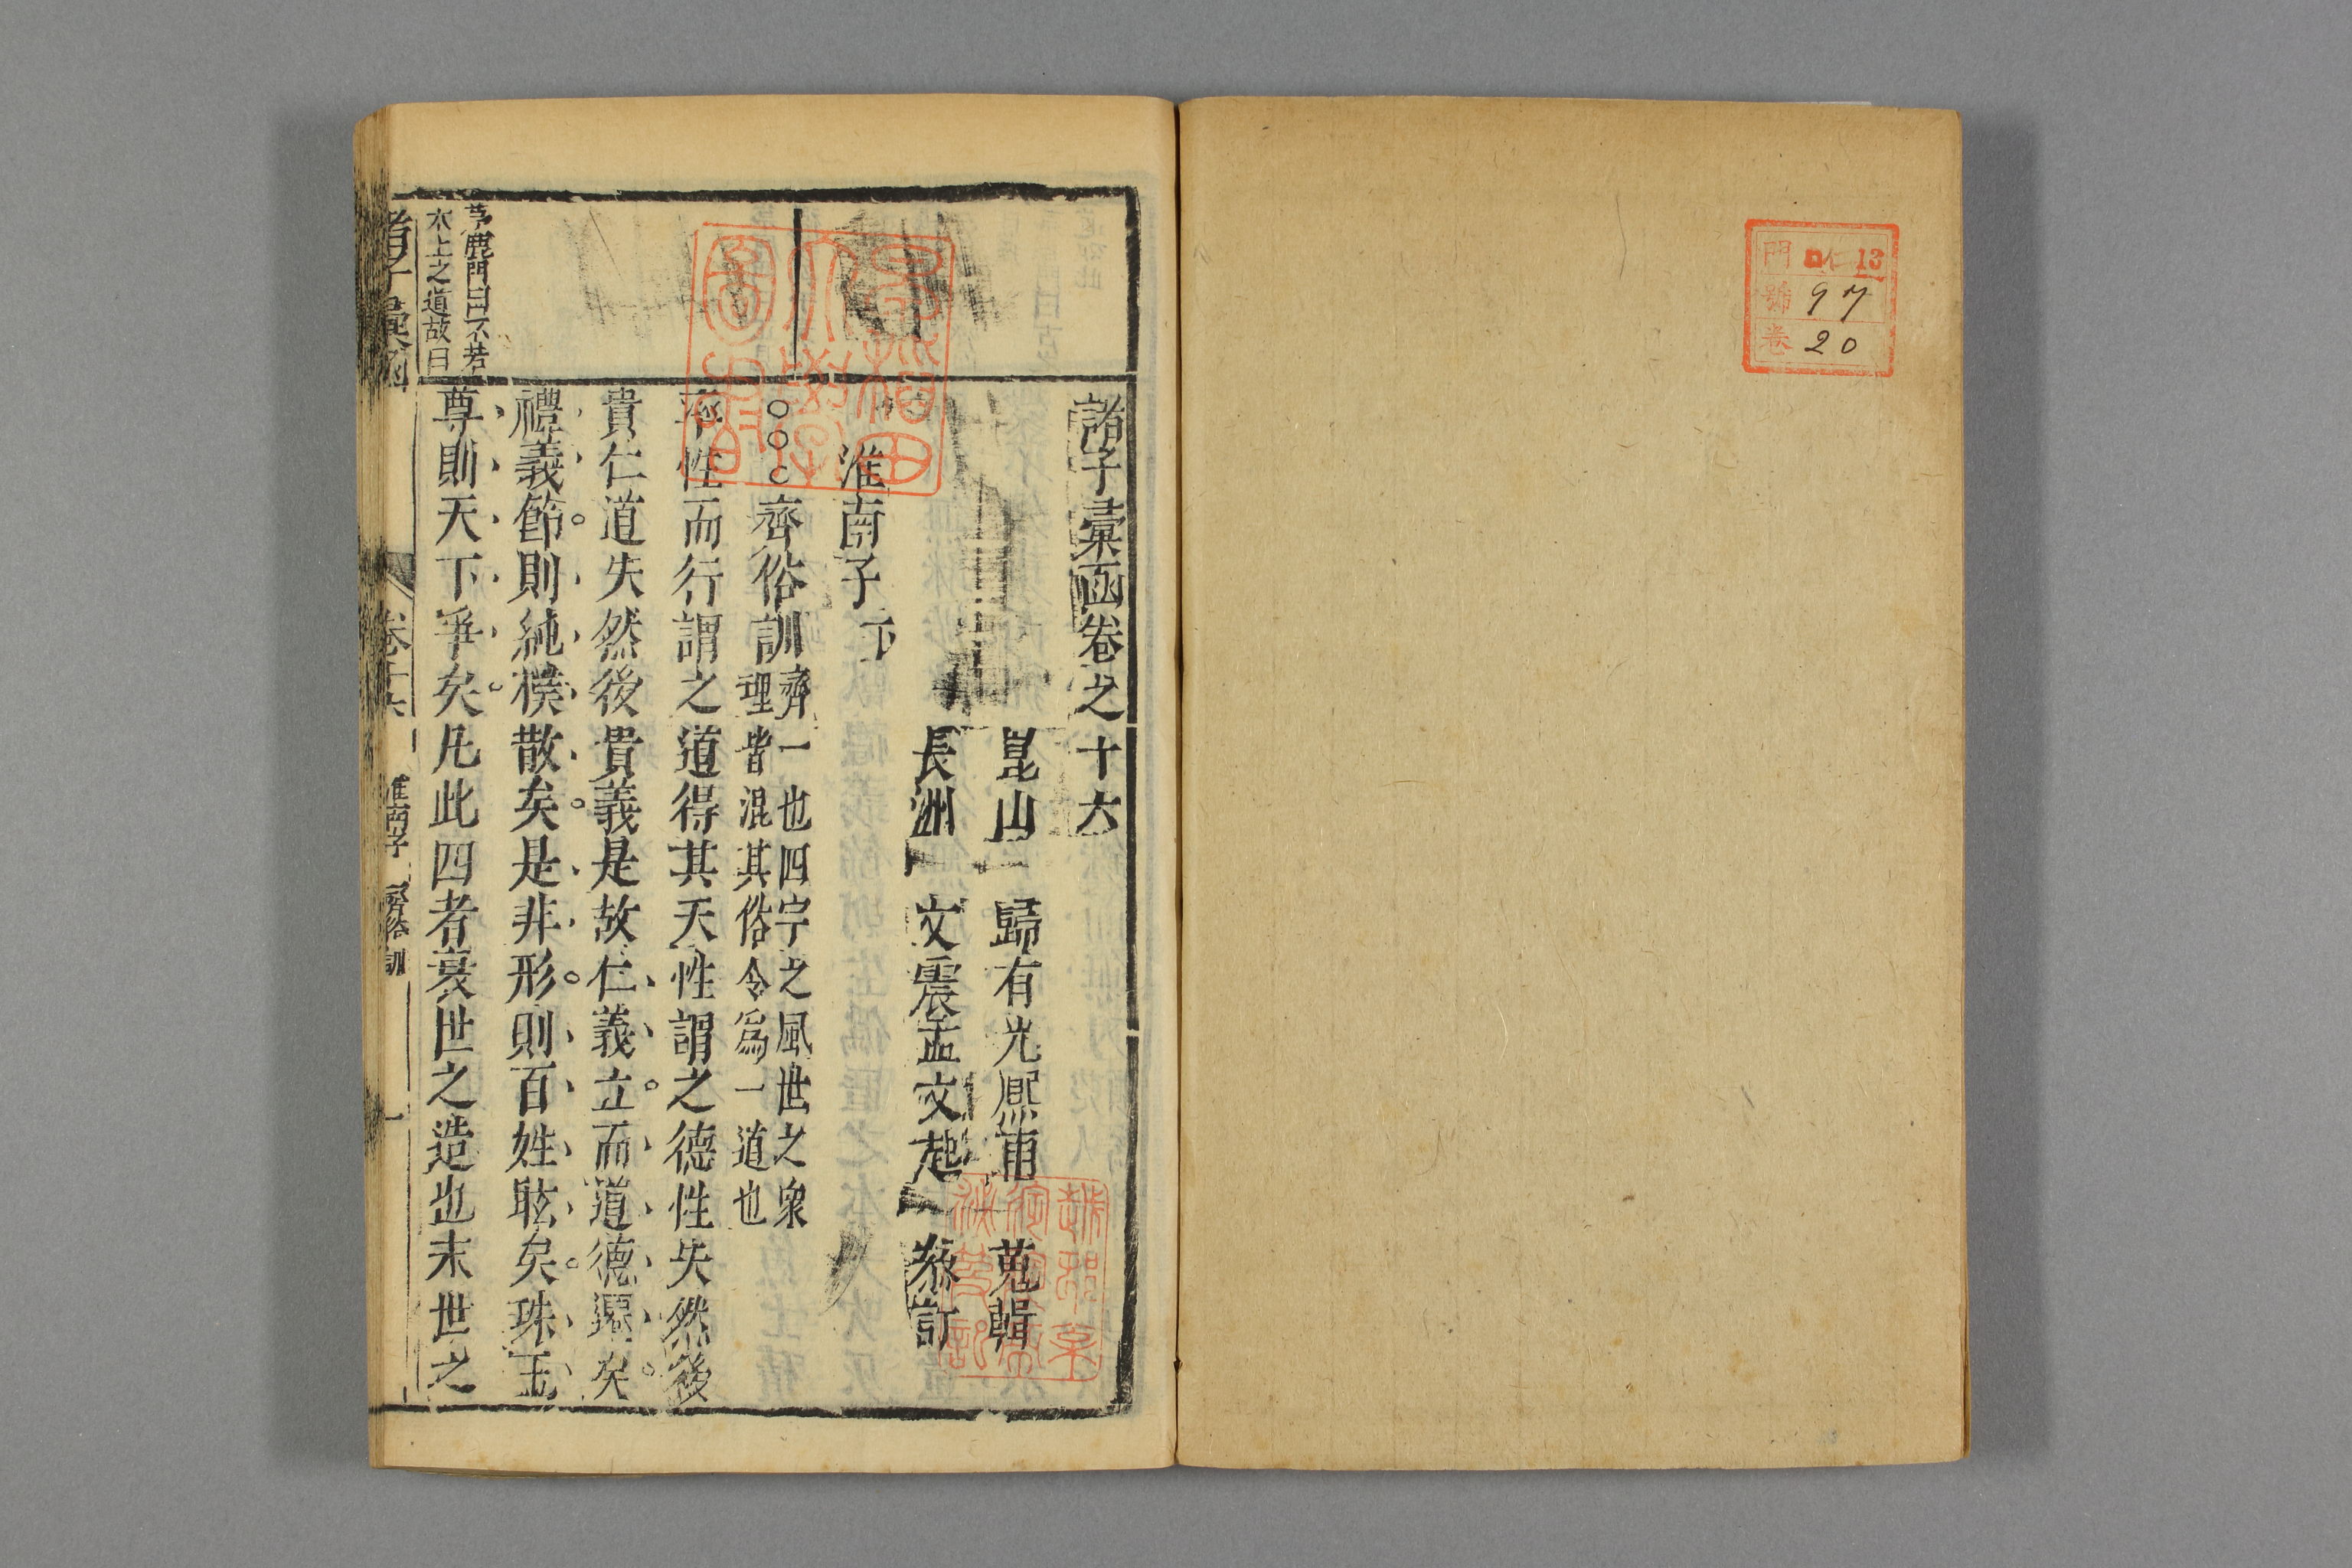 門 仁 13
號 97
卷 20
諸子彙函卷之十六
崑山 歸有光熙甫 蒐輯
長洲 文震孟文起 叅訂
淮南子 下
○○○齊俗訓
齊一也四宇之風世之衆
理皆混其俗令爲一道也
率性而行謂之道得其天性謂之德性失然後
貴仁道失然後貴義是故仁義立而道德遷矣
禮義節則純樸散矣是非形則百姓眩矣珠玉
尊則天下爭矣凡此四者衰世之造也末世之
茅鹿門曰不若
木上之道故曰
諸子彙函 卷十六 淮南子 齊俗訓 一
早稻田大學圖書